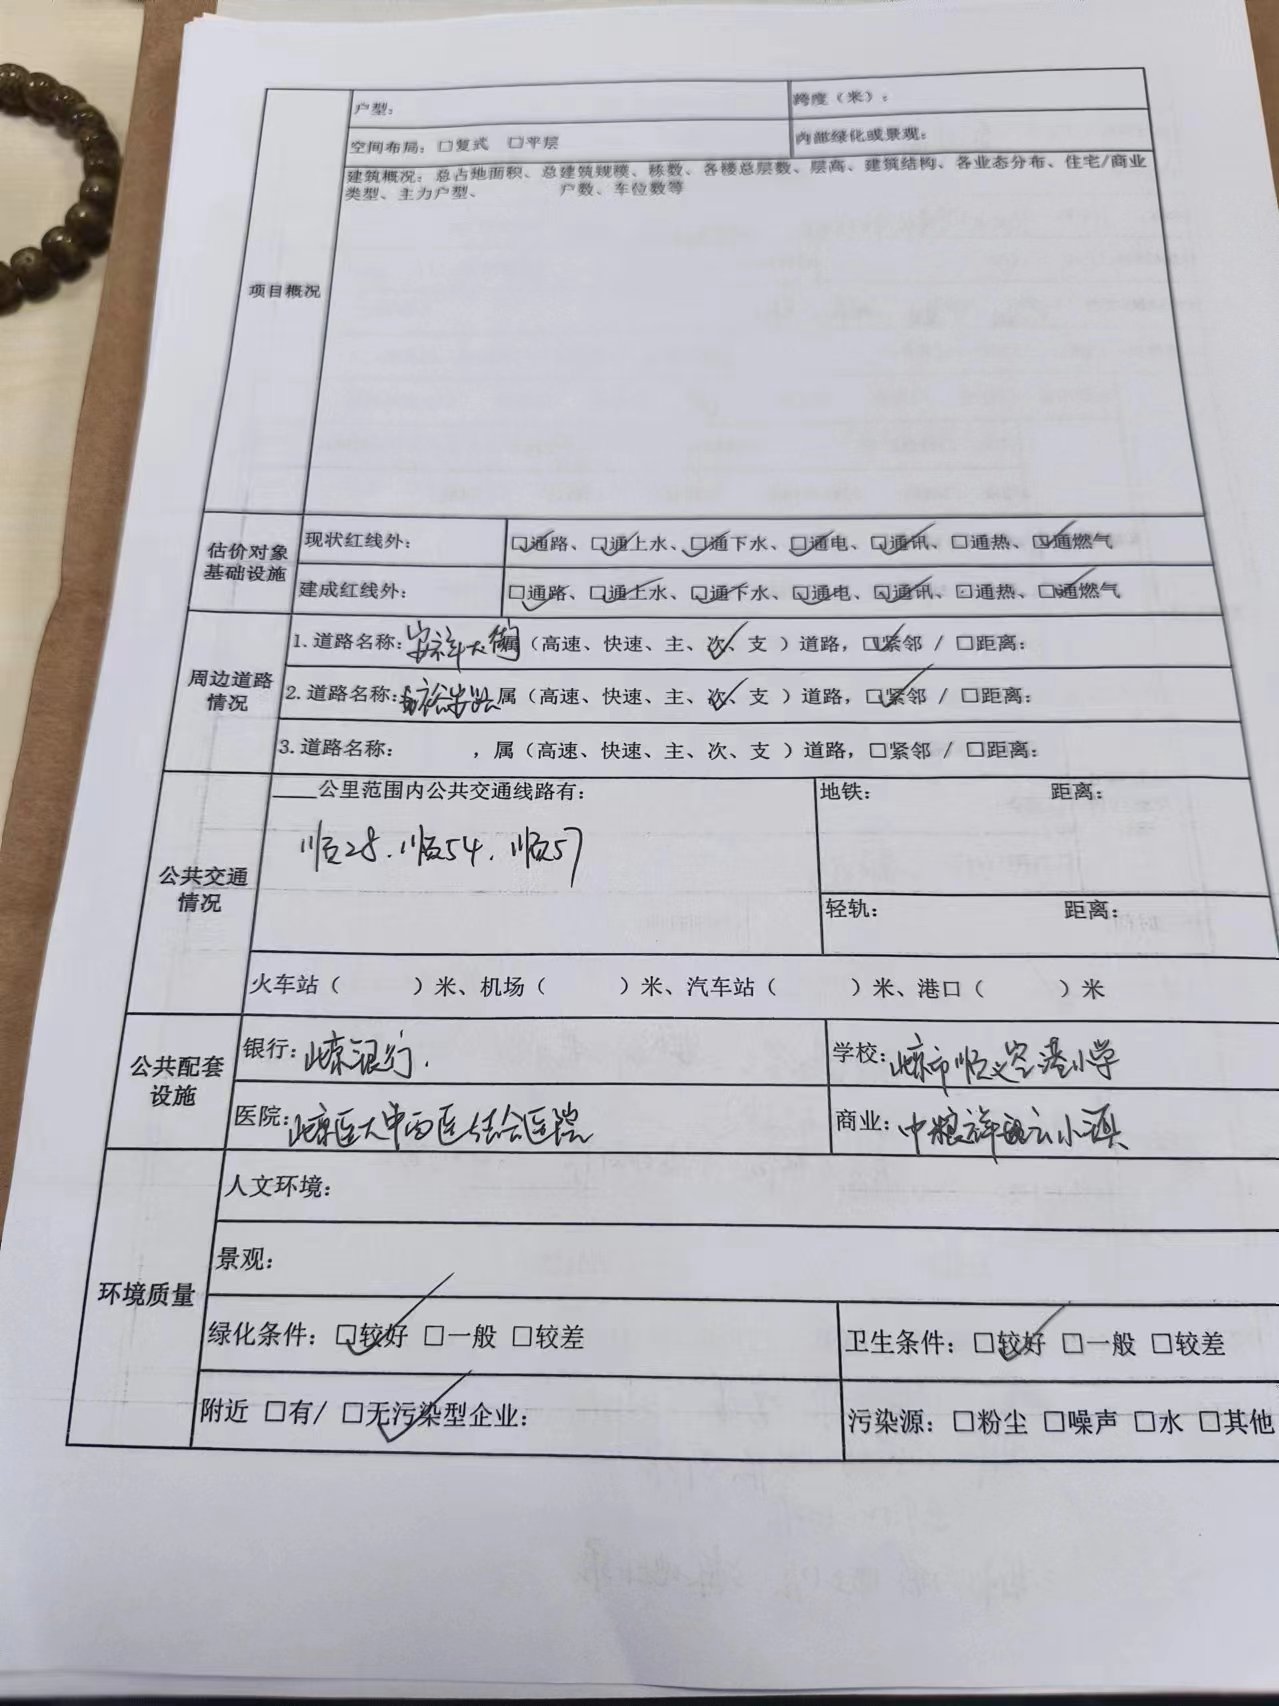 户型： 跨度（米）：
空间布局：□复式 □平层 内部绿化或景观：
项目概况
建筑概况：总占地面积、总建筑规模、栋数、各楼总层数、层高、建筑结构、各业态分布、住宅/商业
类型、主力户型、 户数、车位数等
估价对象
基础设施
现状红线外： ☑通路、☑通上水、☑通下水、☑通电、☑通讯、□通热、☑通燃气
建成红线外： ☑通路、☑通上水、☑通下水、☑通电、☑通讯、□通热、☑通燃气
周边道路
情况
1.道路名称：安祥大街属（高速、快速、主、次✓、支 ）道路，☑紧邻 / □距离：
2.道路名称： 属（高速、快速、主、次✓、支 ）道路，☑紧邻 / □距离：
3.道路名称： ，属（高速、快速、主、次、支 ）道路，□紧邻 / □距离：
公共交通
情况
___公里范围内公共交通线路有： 地铁： 距离：
顺28.顺54.顺57
轻轨： 距离：
火车站（ ）米、机场（ ）米、汽车站（ ）米、港口（ ）米
公共配套
设施
银行：北京银行. 学校：北京市顺义空港小学
医院：北京医大中西医结合医院 商业：中粮祥云小镇
环境质量
人文环境：
景观：
绿化条件：☑较好 □一般 □较差 卫生条件：☑较好 □一般 □较差
附近 □有/ ☑无污染型企业： 污染源：□粉尘 □噪声 □水 □其他